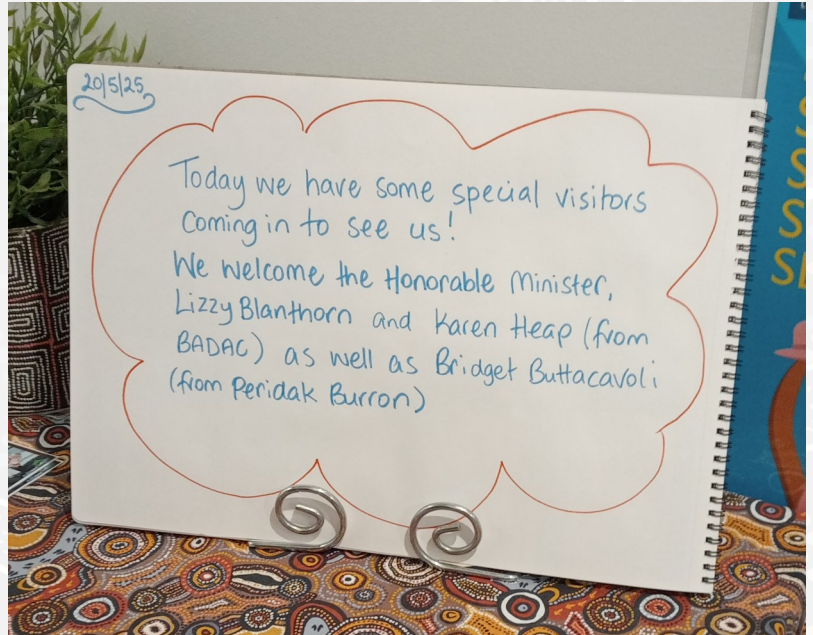 20/5/25
Today we have some special visitors
coming in to see us!
We welcome the Honorable Minister,
Lizzy Blanthorn and Karen Heap (from
BADAC) as well as Bridget Buttacavoli
(from Peridak Burron)